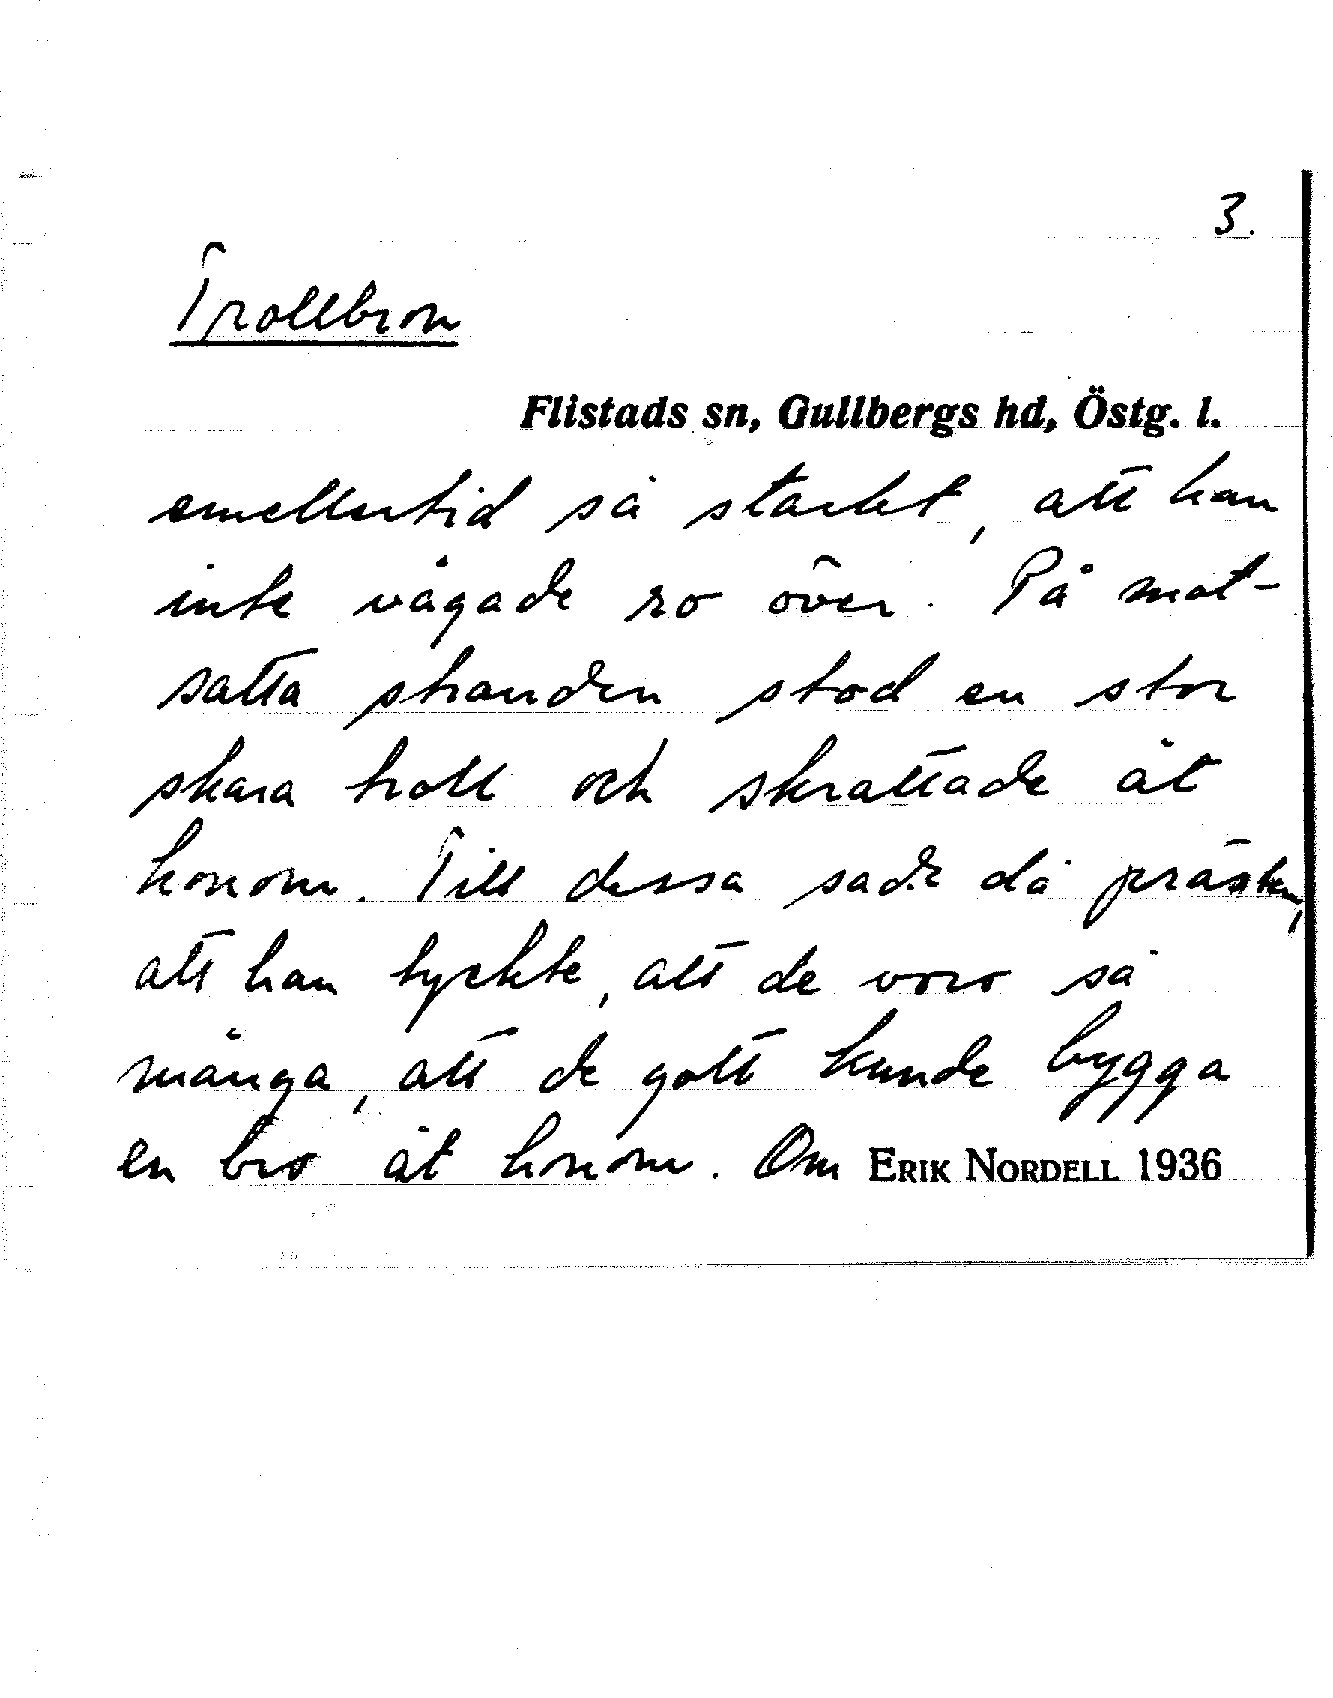 3.
Trollbron
Flistads sn, Gullbergs hd, Östg. l.
emellertid så starkt, att han
inte vågade ro över. På mot-
satta stranden stod en stor
skara troll och skrattade åt
honom. Till dessa sade då prästen,
att han tyckte, att de voro så
många, att de gott kunde bygga
en bro åt honom. Om ERIK NORDELL 1936